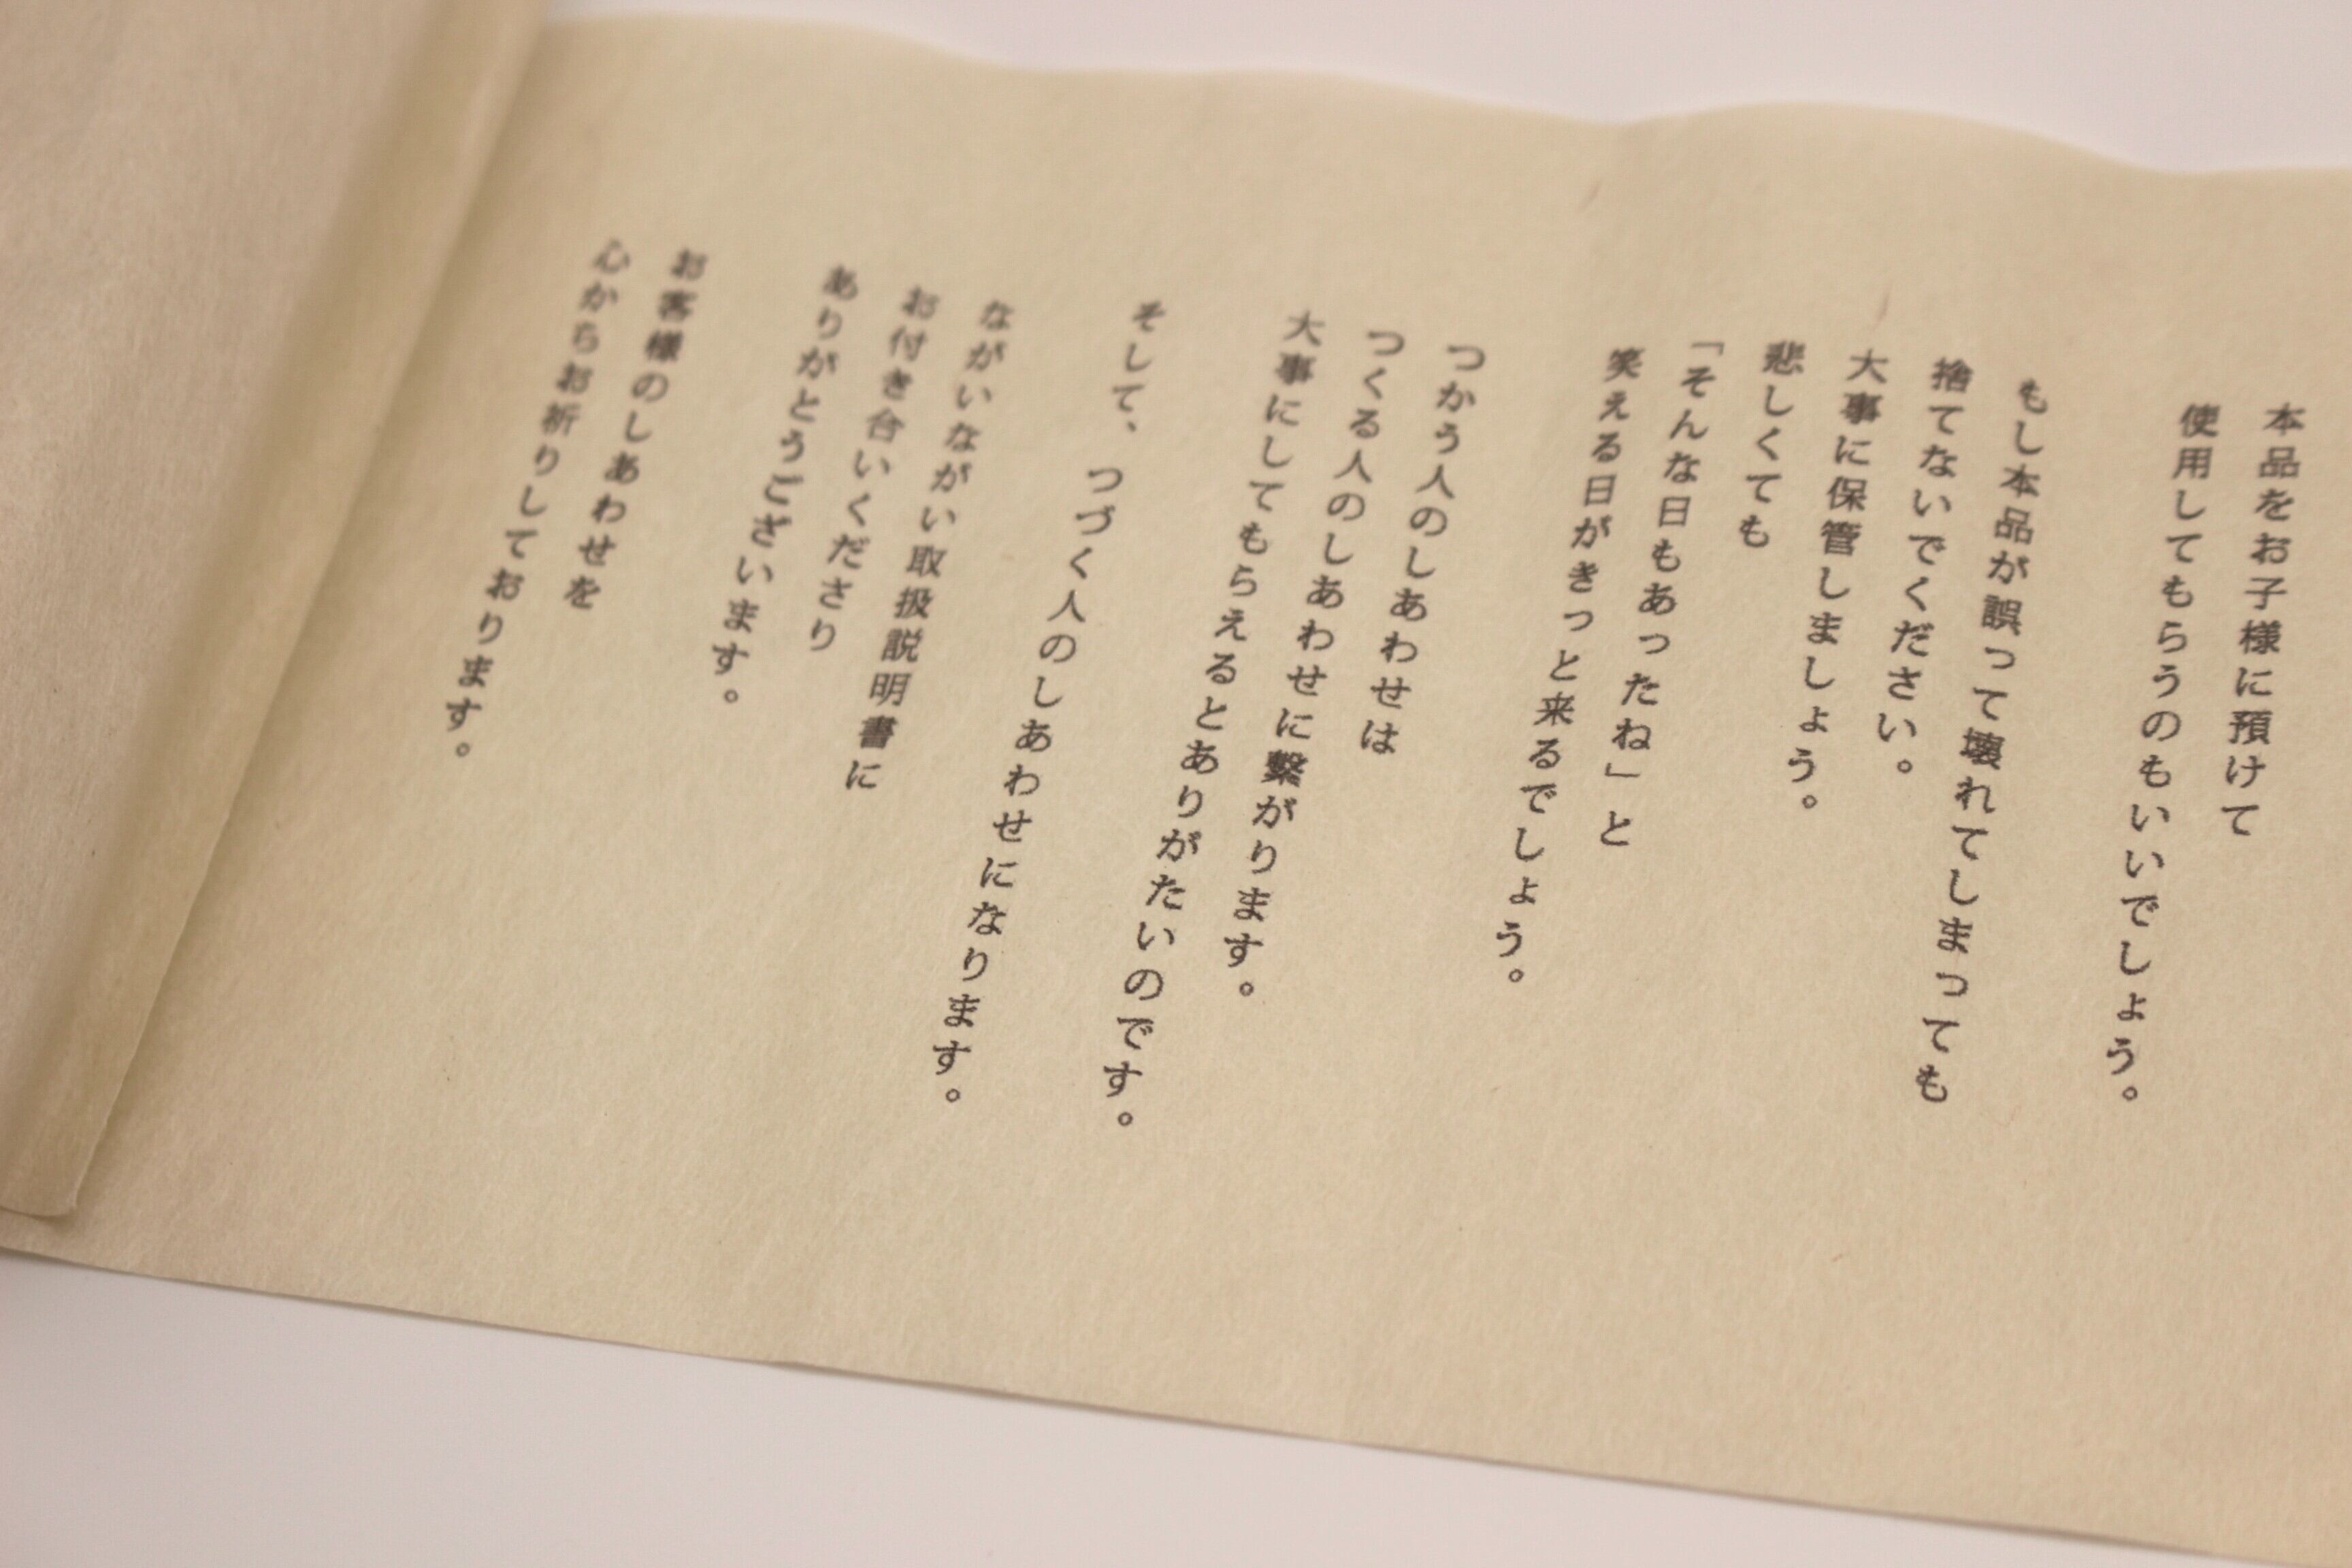 本品をお子様に預けて
使用してもらうのもいいでしょう。
もし本品が誤って壊れてしまっても
捨てないでください。
大事に保管しましょう。
悲しくても
「そんな日もあったね」と
笑える日がきっと来るでしょう。
つかう人のしあわせは
つくる人のしあわせに繋がります。
大事にしてもらえるとありがたいのです。
そして、つづく人のしあわせになります。
ながいながい取扱説明書に
お付き合いくださり
ありがとうございます。
お客様のしあわせを
心からお祈りしております。